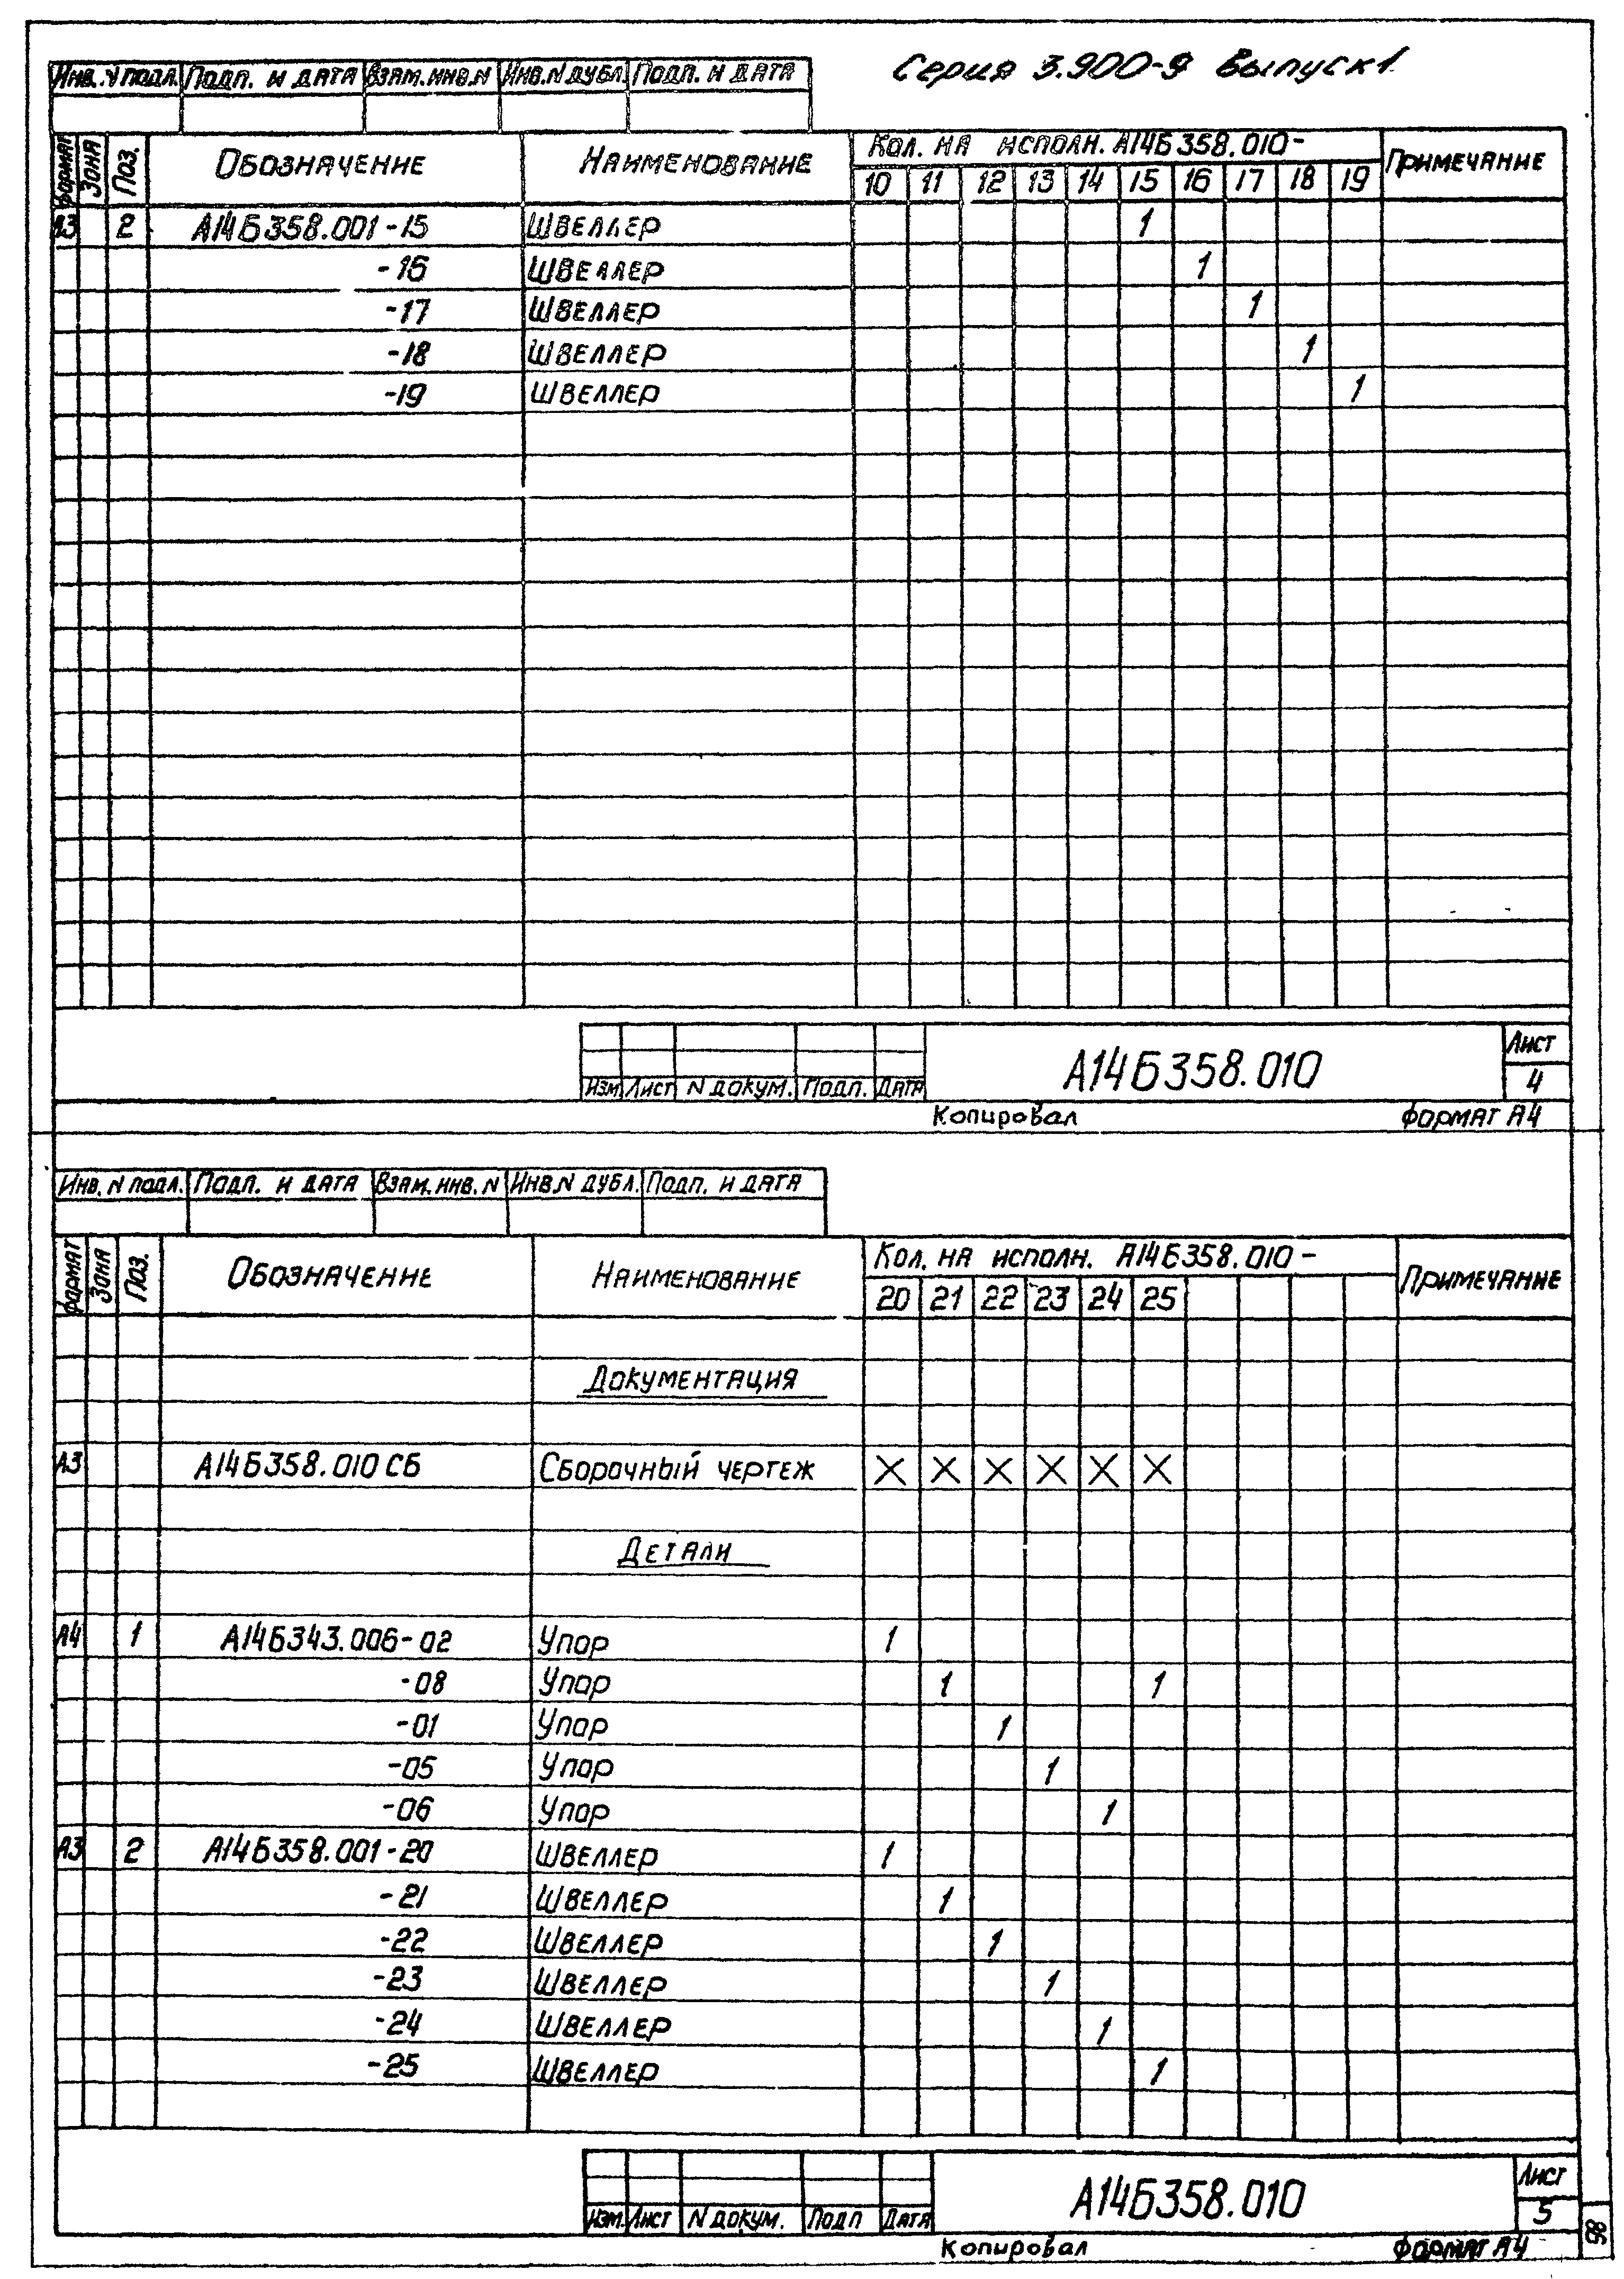 Серия 3.900-9 Выпуск 1
Инв. N подл. Подп. и дата Взам. инв. N Инв. N дубл. Подп. и дата
Формат Зона Поз. Обозначение Наименование Кол. на исполн. А14Б358.010- Примечание
10 11 12 13 14 15 16 17 18 19
А3 2 А14Б358.001-15 Швеллер 1
-16 Швеллер 1
-17 Швеллер 1
-18 Швеллер 1
-19 Швеллер 1
Изм Лист N докум. Подп. Дата А14Б358.010 Лист 4
Копировал Формат А4
Инв. N подл. Подп. и дата Взам. инв. N Инв. N дубл. Подп. и дата
Формат Зона Поз. Обозначение Наименование Кол. на исполн. А14Б358.010- Примечание
20 21 22 23 24 25
Документация
А3 А14Б358.010 СБ Сборочный чертеж X X X X X X
Детали
А4 1 А14Б343.006-02 Упор 1
-08 Упор 1 1
-01 Упор 1
-05 Упор 1
-06 Упор 1
А3 2 А14Б358.001-20 Швеллер 1
-21 Швеллер 1
-22 Швеллер 1
-23 Швеллер 1
-24 Швеллер 1
-25 Швеллер 1
Изм. Лист N докум. Подп Дата А14Б358.010 Лист 5
Копировал Формат А4
98